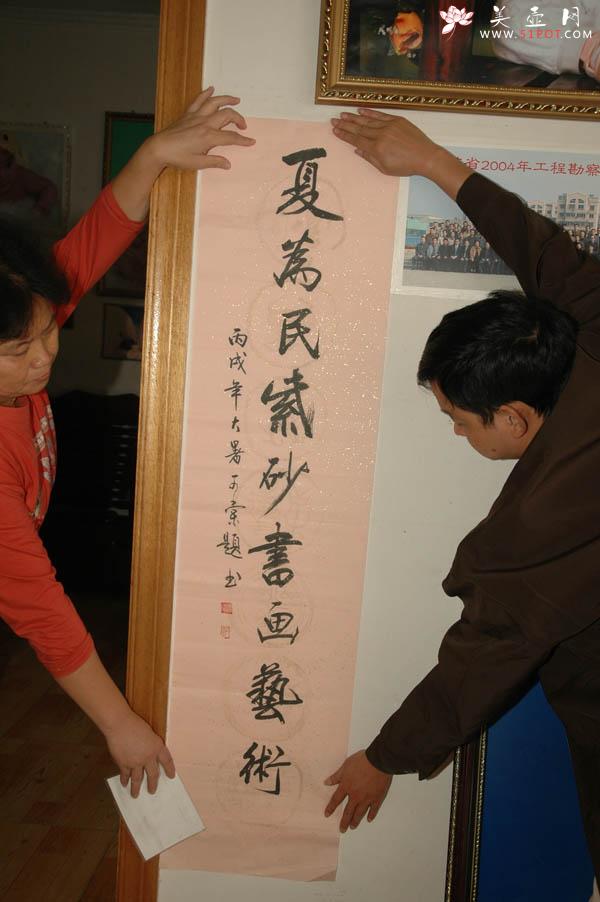 美壶网
WWW.51POT.COM
省2004年工程勘察
夏為民紫砂書画藝術
丙戌年大暑
題